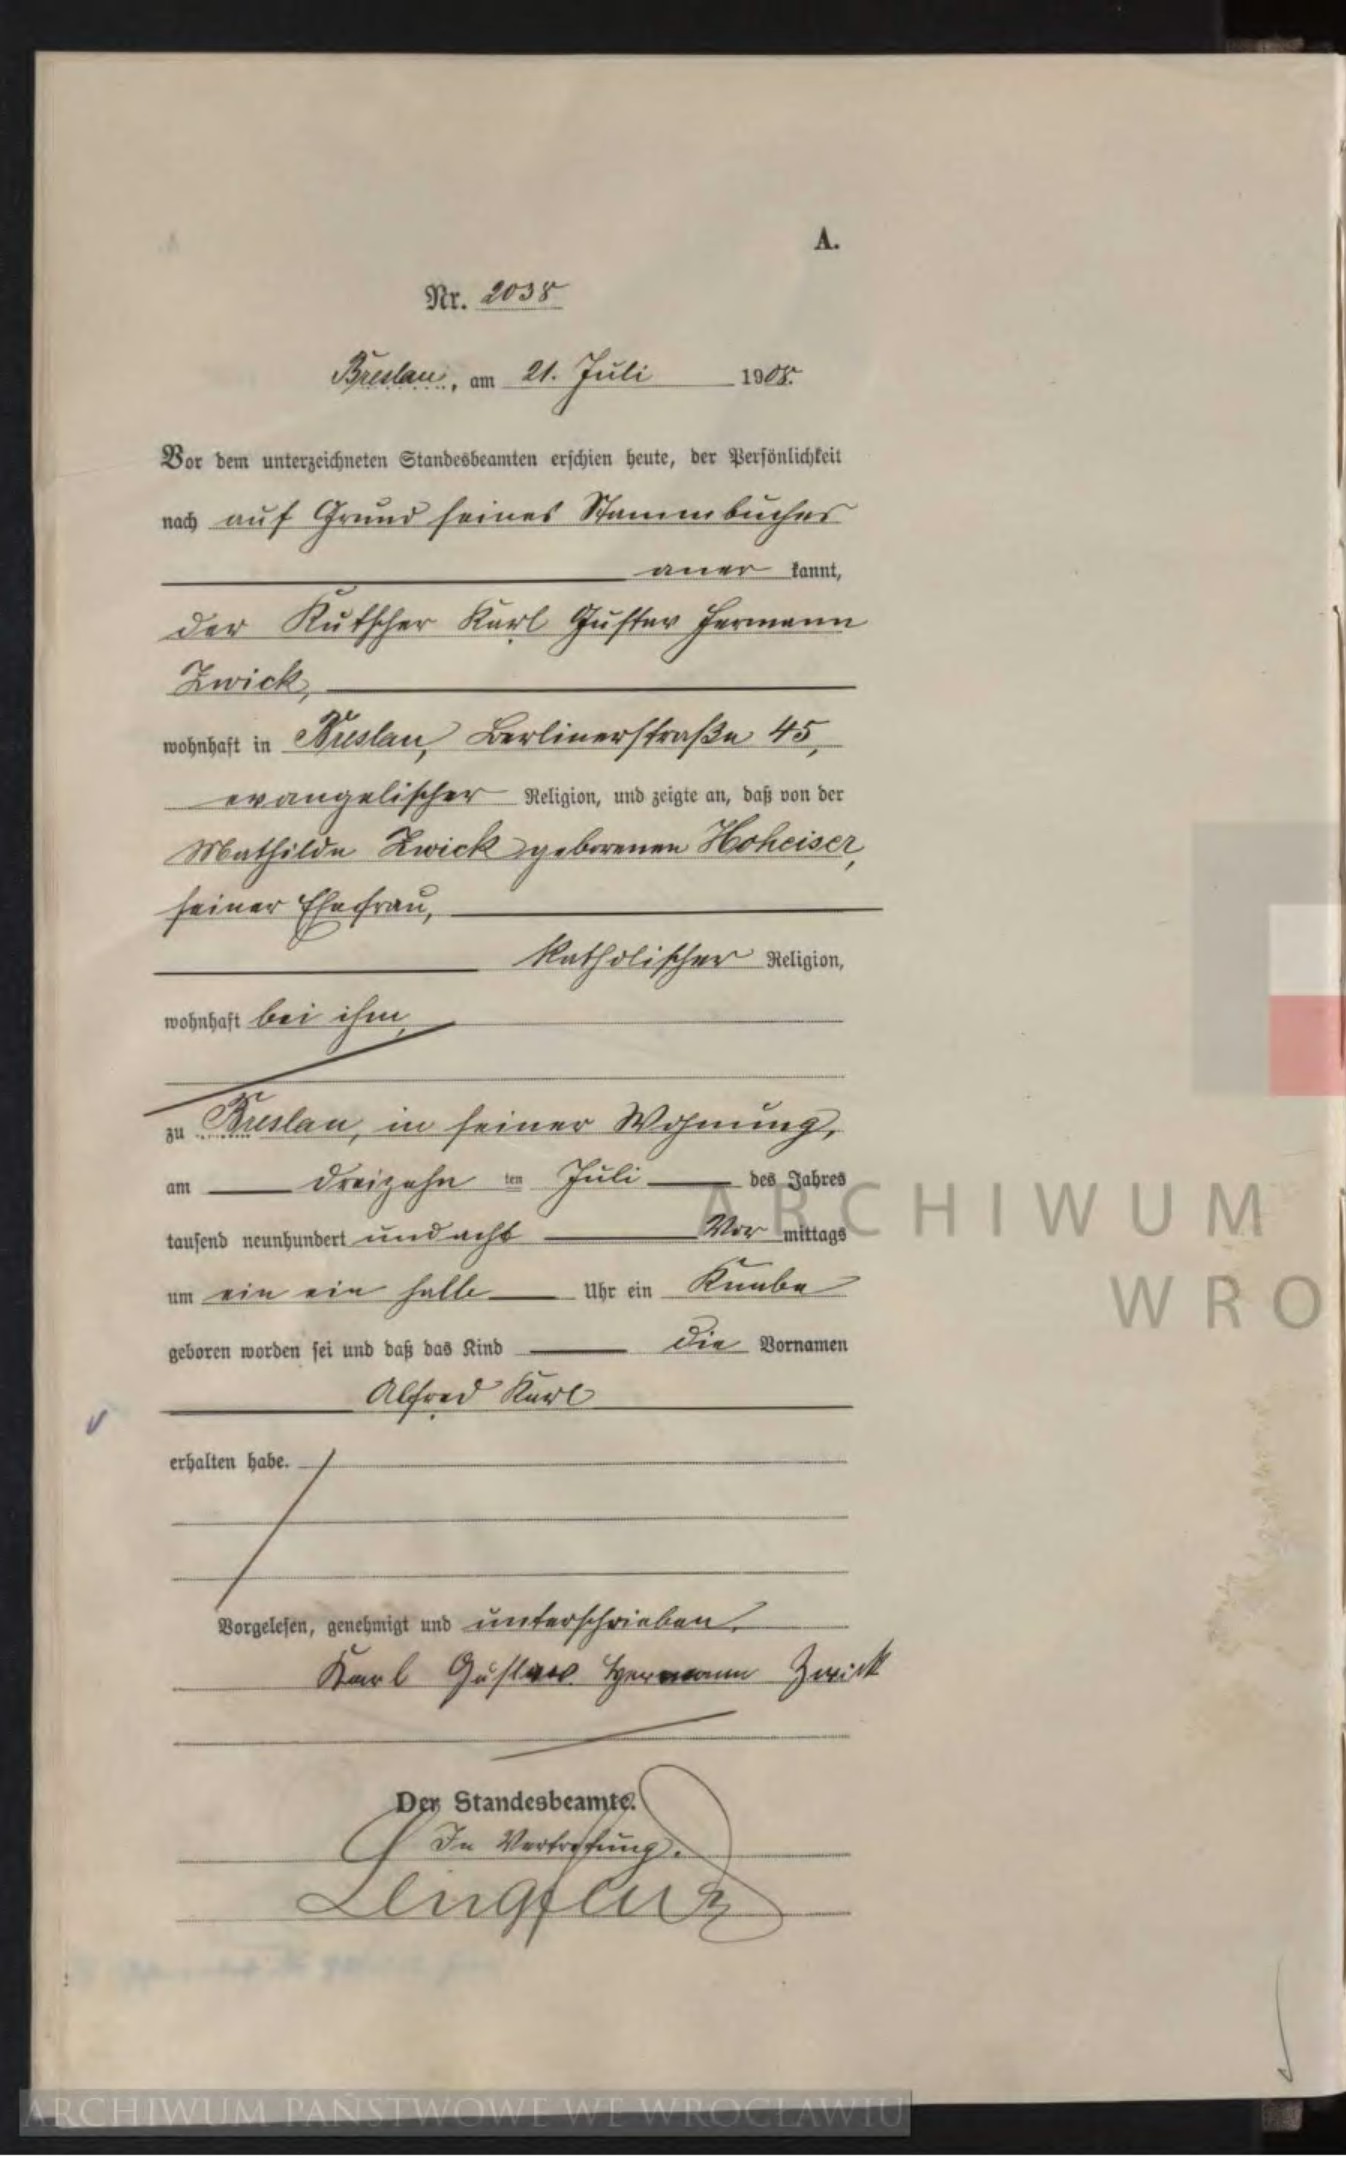 A.
Nr. 2038
Breslau, am 21. Juli 1908.
Vor dem unterzeichneten Standesbeamten erschien heute, der Persönlichkeit
nach auf Grund seines Stammbuches
aner kannt,
der Kutscher Karl Gustav Hermann
Zwick,
wohnhaft in Breslau, Berlinerstraße 45,
evangelischer Religion, und zeigte an, daß von der
Mathilde Zwick geborenen Hoheiser,
seiner Ehefrau,
katholischer Religion,
wohnhaft bei ihm,
zu Breslau, in seiner Wohnung,
am dreizehn ten Juli des Jahres
tausend neunhundert und acht Vor mittags
um ein ein halb Uhr ein Knabe
geboren worden sei und daß das Kind die Vornamen
Alfred Karl
erhalten habe.
Vorgelesen, genehmigt und unterschrieben.
Karl Gustav Hermann Zwick
Der Standesbeamte.
In Vertretung.
ARCHIWUM
WRO
ARCHIWUM PAŃSTWOWE WE WROCŁAWIU